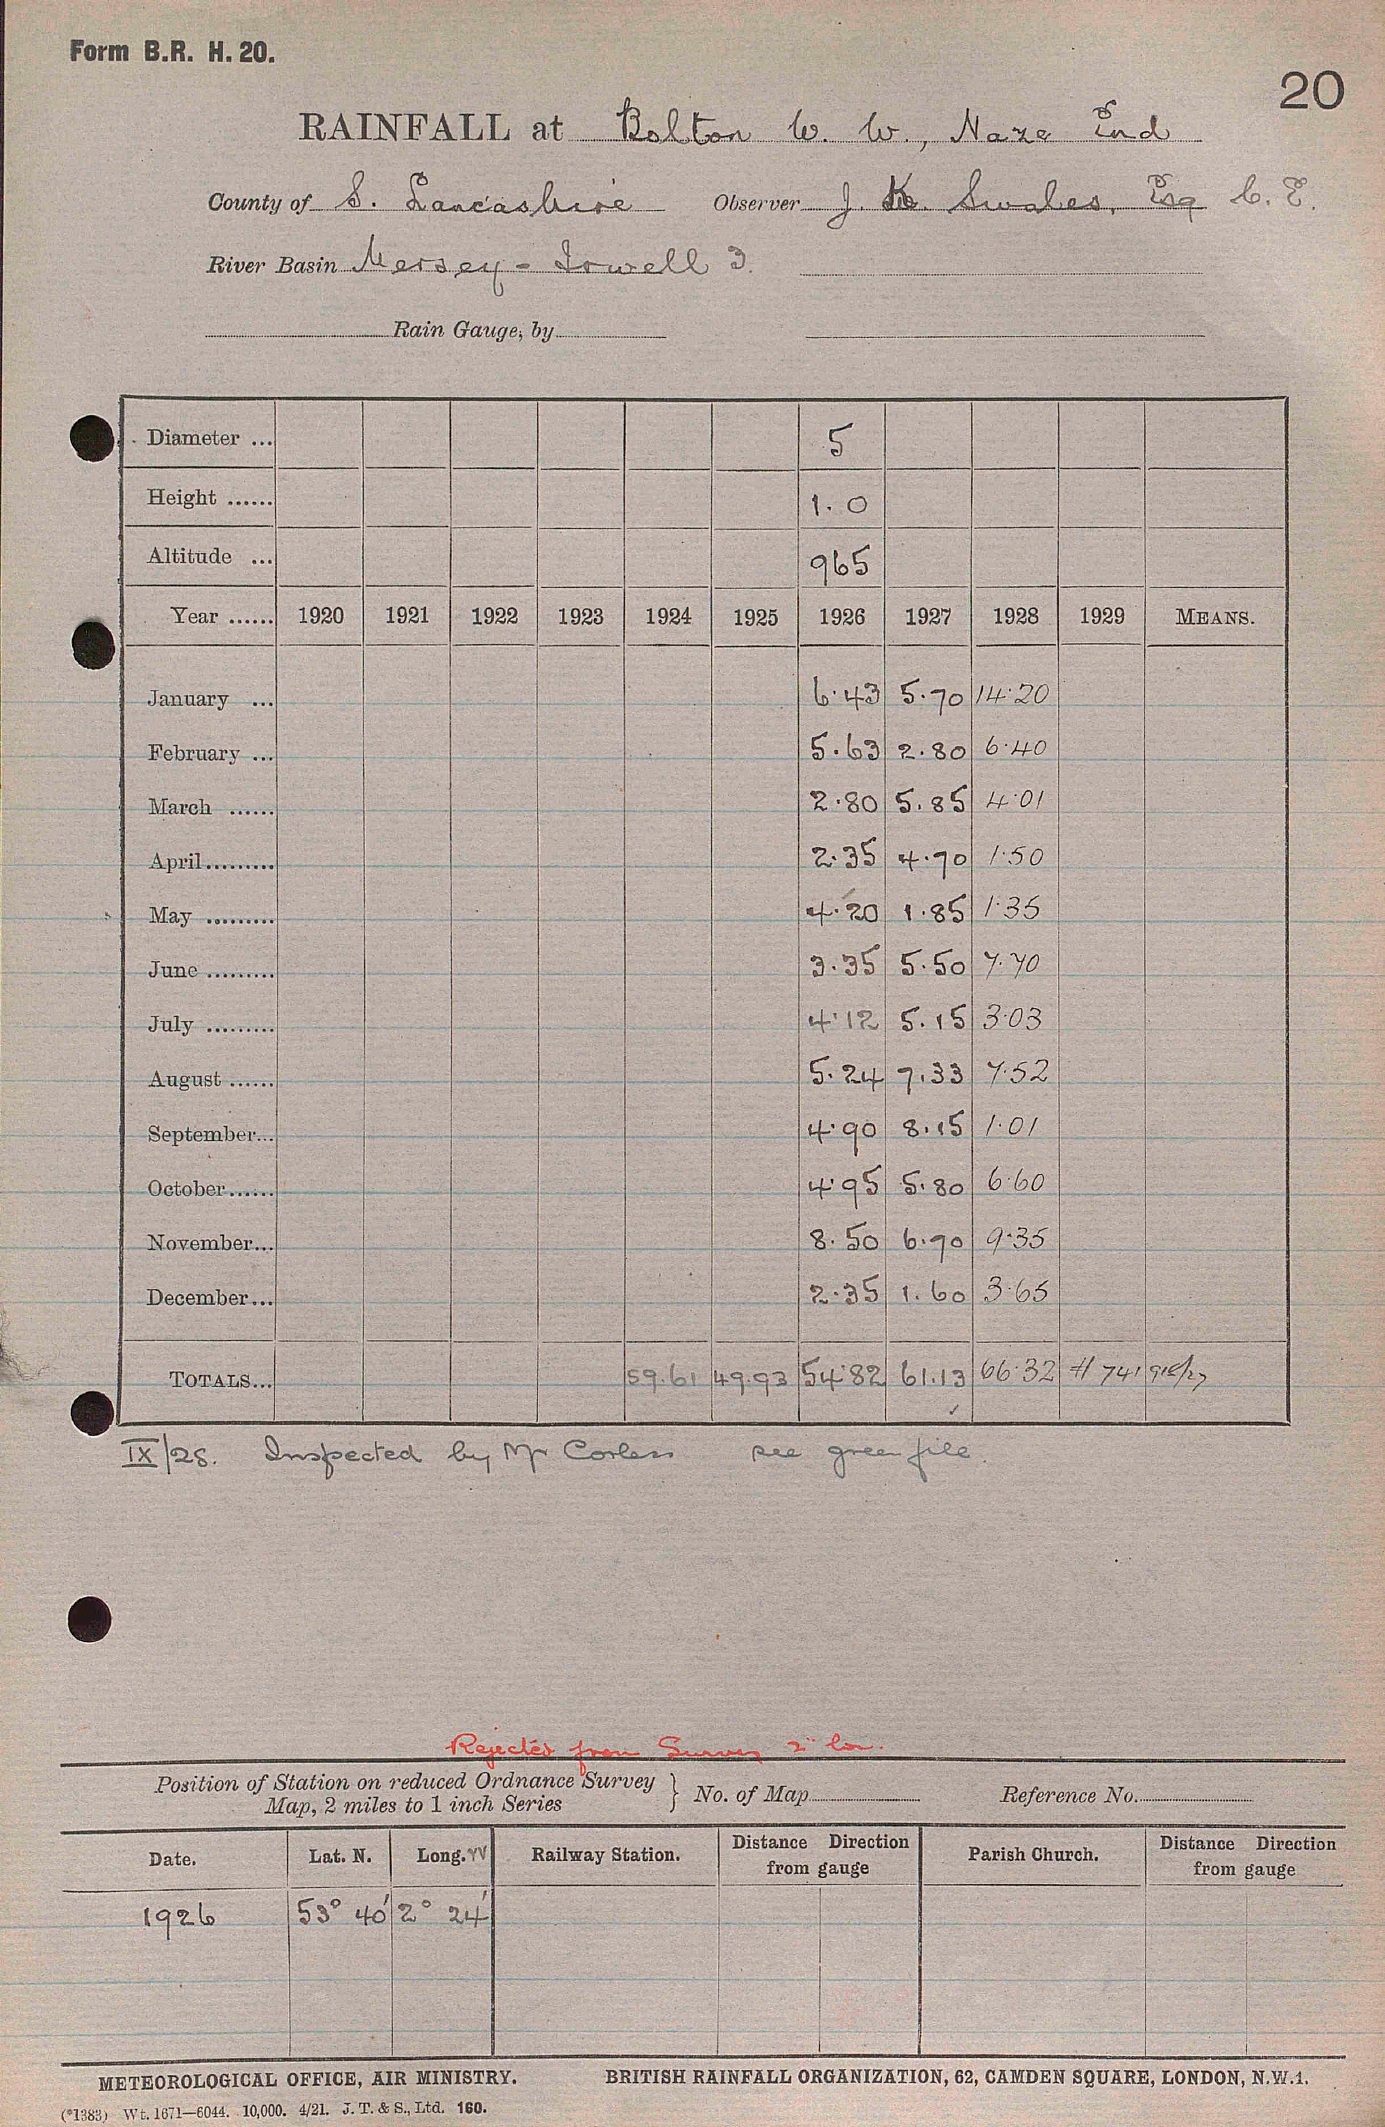 Form B.R. H. 20.
20
RAINFALL at Bolton W. W., Naze End
County of S. Lancashire Observer J. K. Swales, Esq C. E.
River Basin Mersey - Irwell 3.
Rain Gauge, by
Diameter ... 5
Height ...... 1.0
Altitude ... 965
Year ...... 1920 1921 1922 1923 1924 1925 1926 1927 1928 1929 MEANS.
January ... 6.43 5.70 14.20
February ... 5.63 2.80 6.40
March ...... 2.80 5.85 4.01
April......... 2.35 4.70 1.50
May ......... 4.20 1.85 1.35
June ......... 3.35 5.50 7.70
July ......... 4.12 5.15 3.03
August ...... 5.24 7.33 7.52
September... 4.90 8.15 1.01
October...... 4.95 5.80 6.60
November... 8.50 6.70 9.35
December... 2.35 1.60 3.65
TOTALS... 59.61 49.93 54.82 61.13 66.32 741
IX/28. Inspected by Mr Corless see green file.
Rejected from Survey 2" low.
Position of Station on reduced Ordnance Survey Map, 2 miles to 1 inch Series } No. of Map Reference No.
Date. Lat. N. Long. W Railway Station. Distance Direction from gauge Parish Church. Distance Direction from gauge
1926 53° 40' 2° 24'
METEOROLOGICAL OFFICE, AIR MINISTRY. BRITISH RAINFALL ORGANIZATION, 62, CAMDEN SQUARE, LONDON, N.W.1.
(*1383) Wt. 1671—6044. 10,000. 4/21. J. T. & S., Ltd. 160.